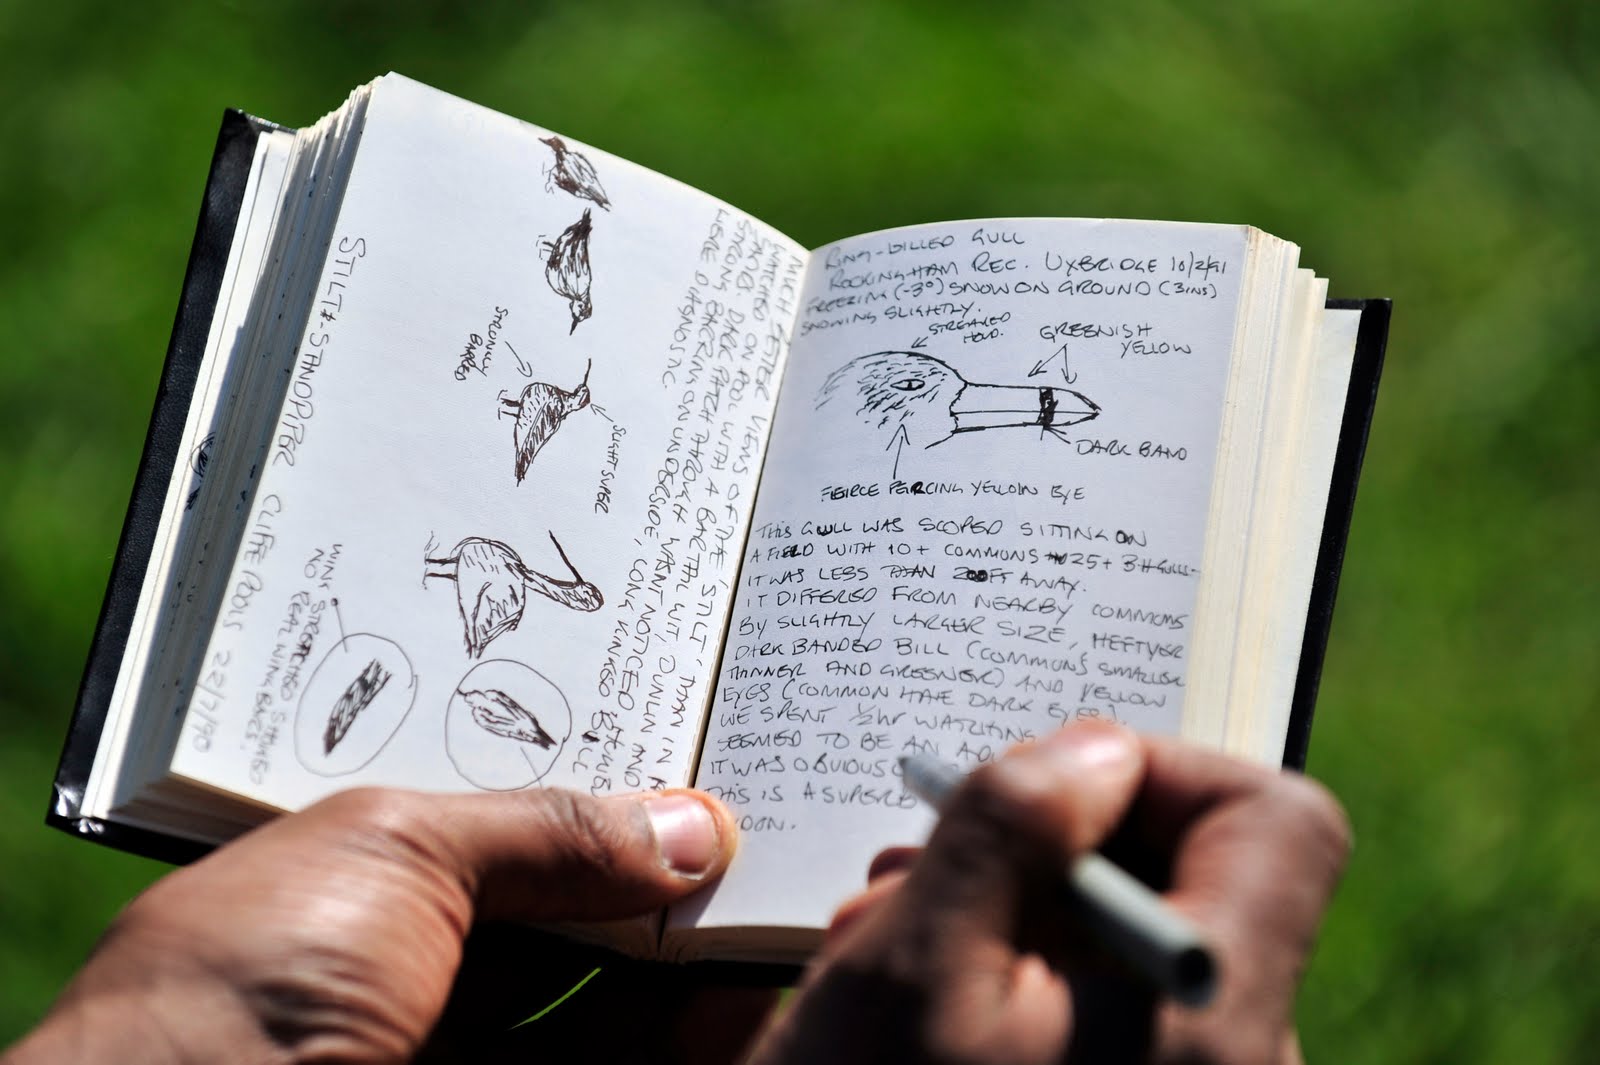 STILT-SANDPIPER CLIFFE POOLS 22/7/90
MUCH BETTER VIEWS OF THE 'STILT' MAN IN
WATCHED ON POOL WITH A BARTAIL WIT, DUNLIN AND
SANDS. DARK PATCH THROUGH WASNT NOTICED
STRONG BARRING ON UNDERSIDE, LONG KINKED BILL
WERE DIAGNOSTIC
STRONGLY
BARRED
SLIGHT SUPER
WINK STRETCHED SHOWED
NO REAL WINK BARS.
RING-BILLED GULL
ROCKINGHAM REC. UXBRIDGE 10/2/91
FREEZING (-3°) SNOW ON GROUND (3INS)
SNOWING SLIGHTLY.
STREAKED
HEAD.
GREENISH
YELLOW
DARK BAND
FIERCE PERCING YELLOW EYE
THIS GULL WAS SCOPED SITTING ON
A FIELD WITH 10+ COMMONS 25+ B-H GULLS-
IT WAS LESS THAN 200FT AWAY.
IT DIFFERED FROM NEARBY COMMONS
BY SLIGHTLY LARGER SIZE, HEFTYER
DARK BANDED BILL (COMMONS SMALLER
THINNER AND GREENER) AND YELLOW
EYES (COMMON HAVE DARK EYES).
WE SPENT ½HR WATCHING
SEEMED TO BE AN
IT WAS OBVIOUS
THIS IS A SUPERB